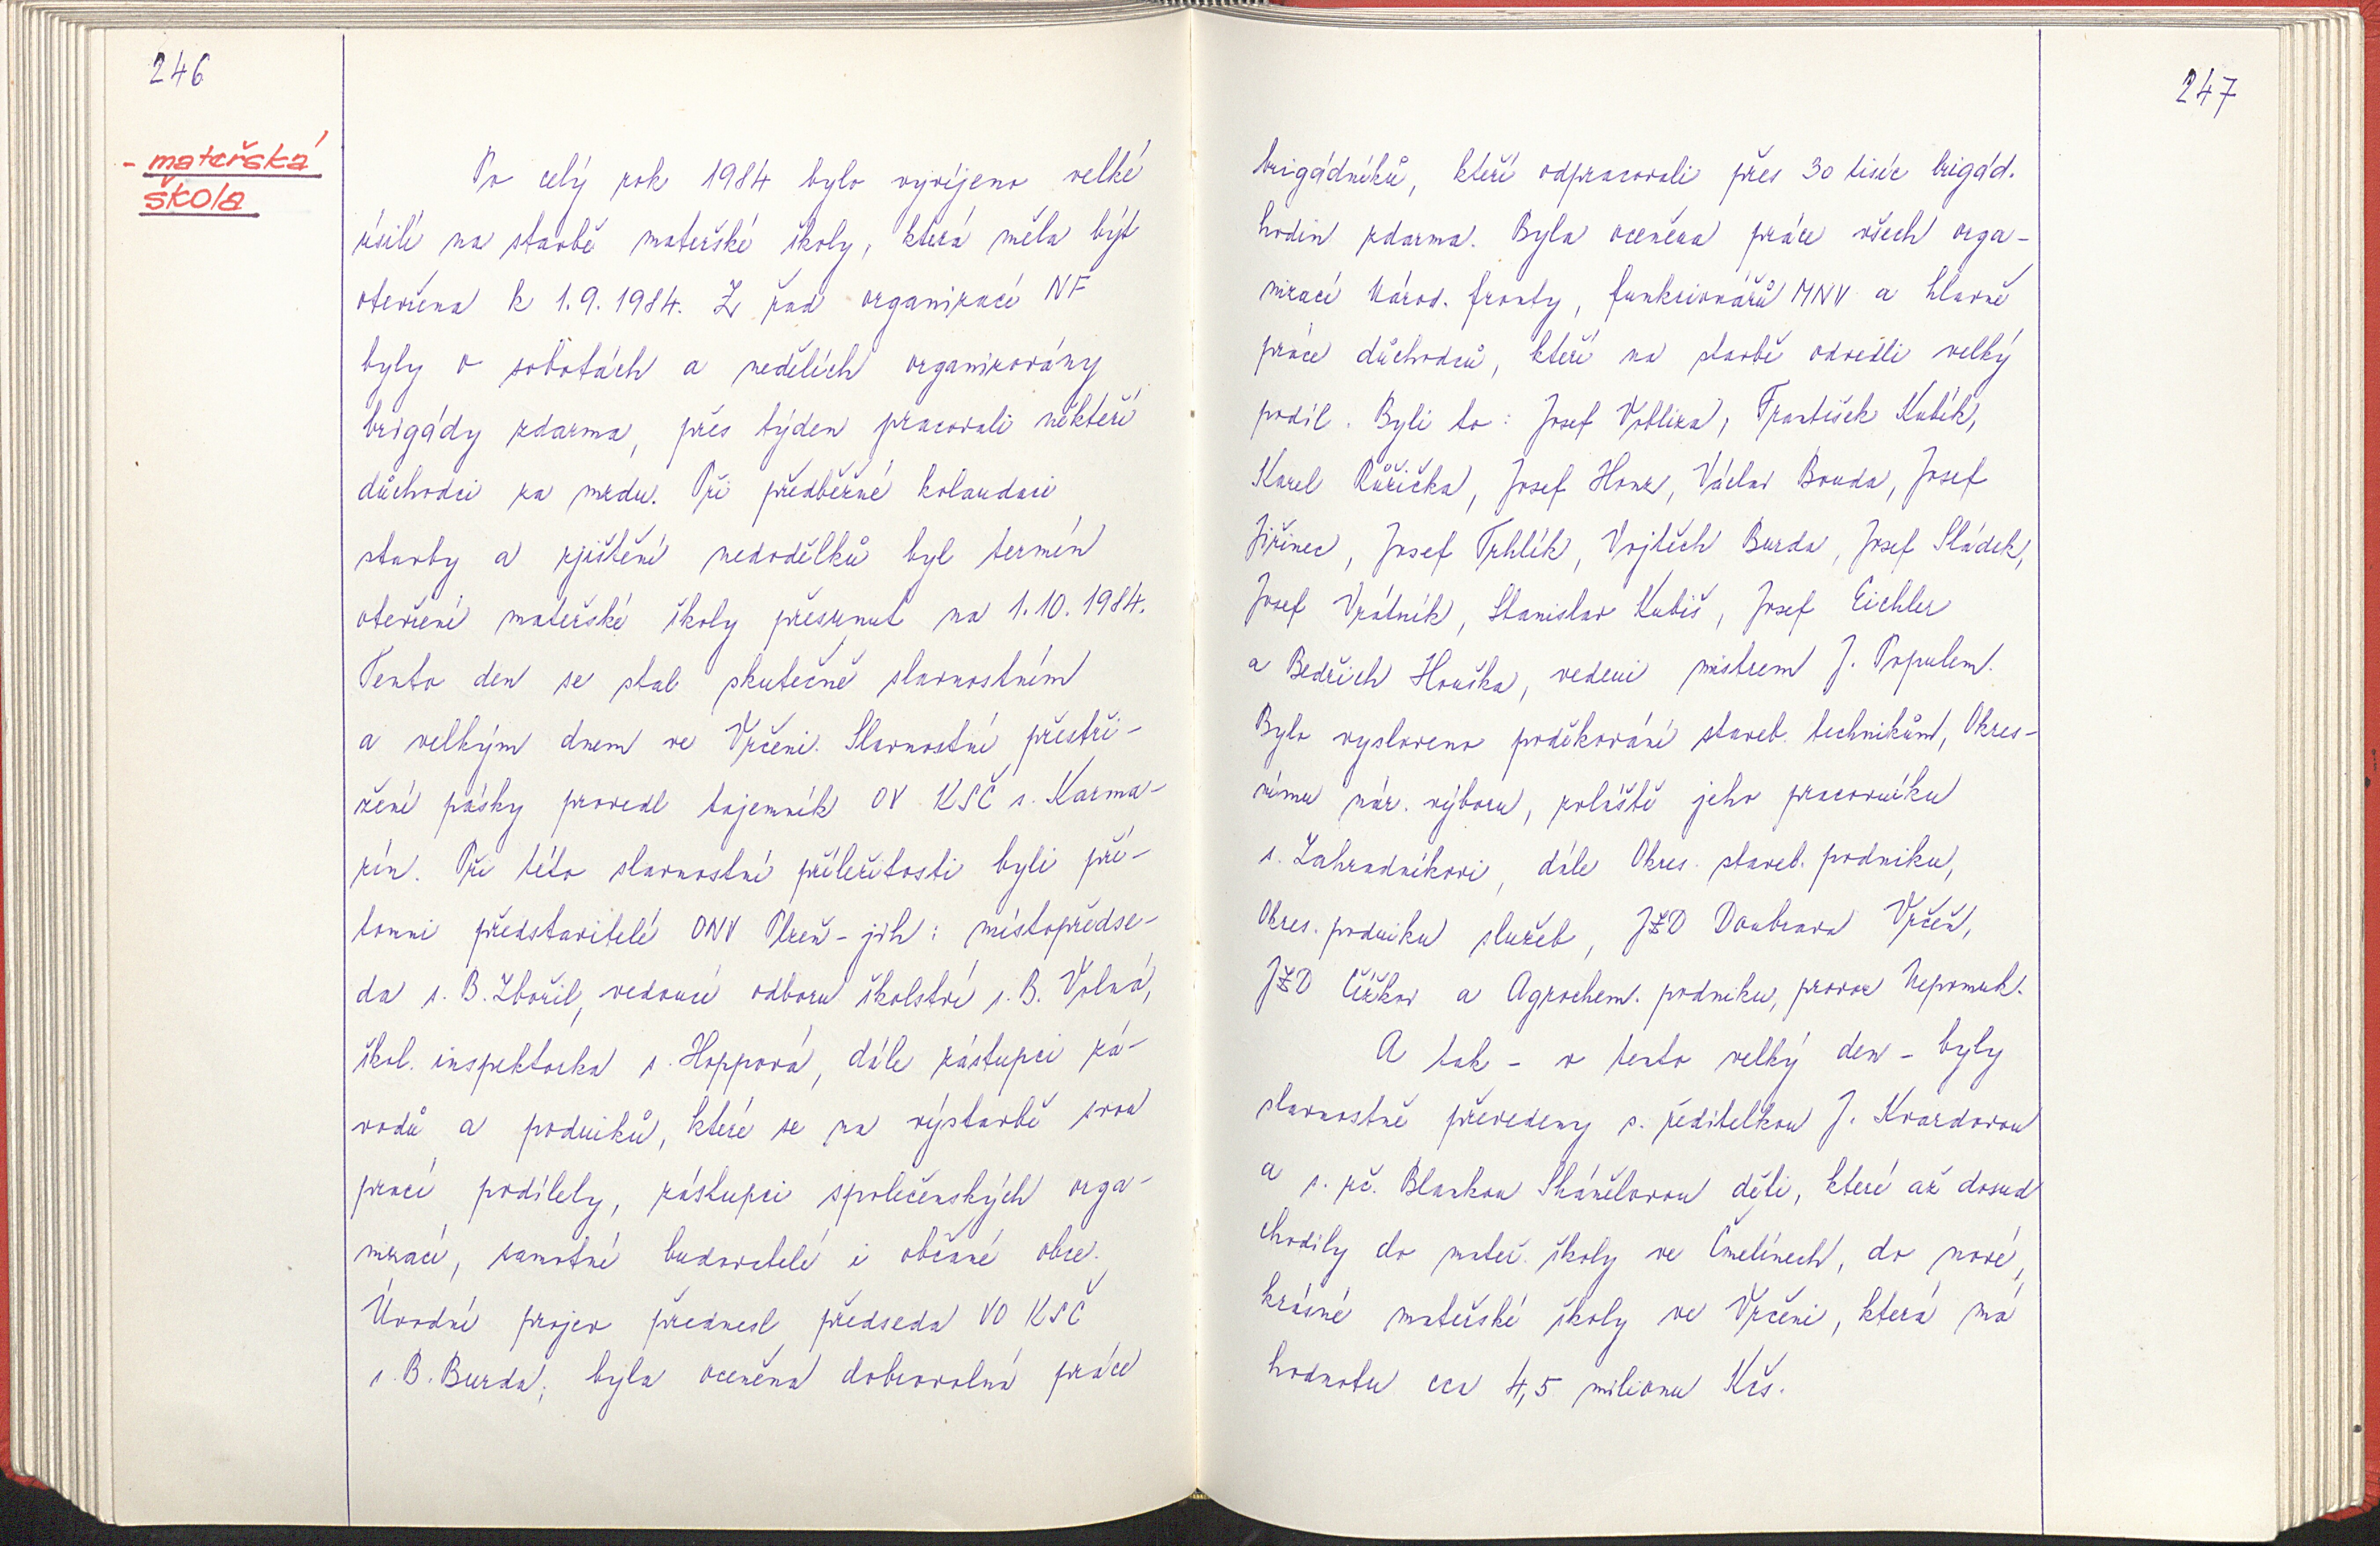 246
- mateřská
škola
Po celý rok 1984 bylo vyvíjeno velké
úsilí na stavbě mateřské školy, která měla být
otevřena k 1.9.1984. Z řad organizací NF
byly o sobotách a nedělích organizovány
brigády zdarma, přes týden pracovali někteří
důchodci za mzdu. Při předběžné kolaudaci
stavby a zjištění nedodělků byl termín
otevření mateřské školy přesunut na 1.10.1984.
Tento den se stal skutečně slavnostním
a velkým dnem ve Vrčeni. Slavnostní přestři-
žení pásky provedl tajemník OV KSČ s. Karma-
zín. Při této slavnostní příležitosti byli pří-
tomni představitelé ONV Plzeň-jih: místopředse-
da s. B. Zbořil, vedoucí odboru školství s. B. Volná,
škol. inspektorka s. Hoppová, dále zástupci zá-
vodů a podniků, které se na výstavbě svou
prací podílely, zástupci společenských orga-
nizací, samotní budovatelé i občané obce.
Úvodní projev přednesl předseda VO KSČ
s. B. Burda, byla oceněna dobrovolná práce
247
brigádníků, kteří odpracovali přes 30 tisíc brigád.
hodin zdarma. Byla oceněna práce všech orga-
nizací Národ. fronty, funkcionářů MNV a hlavně
práce důchodců, kteří na stavbě odvedli velký
podíl. Byli to: Josef Vobliza, František Kubík,
Karel Růžička, Josef Honz, Václav Bouda, Josef
Jiřinec, Josef Trhlík, Vojtěch Burda, Josef Sládek,
Josef Vrátník, Stanislav Kubiš, Josef Eichler
a Bedřich Houška, vedeni mistrem J. Populem.
Bylo vysloveno poděkování staveb. technikům, Okres-
nímu nár. výboru, zvláště jeho pracovníku
s. Zahradníkovi, dále Okres. staveb. podniku,
Okres. podniku služeb, JZD Doubrava Vrčeň,
JZD Čížkov a Agrochem. podniku, provoz Nepomuk.
A tak - v tento velký den - byly
slavnostně převedeny s. ředitelkou J. Kvardovou
a s. uč. Blankou Skánělovou děti, které až dosud
chodily do mateř. školy ve Čmelínech, do nové,
krásné mateřské školy ve Vrčeni, která má
hodnotu cca 4,5 milionu Kčs.